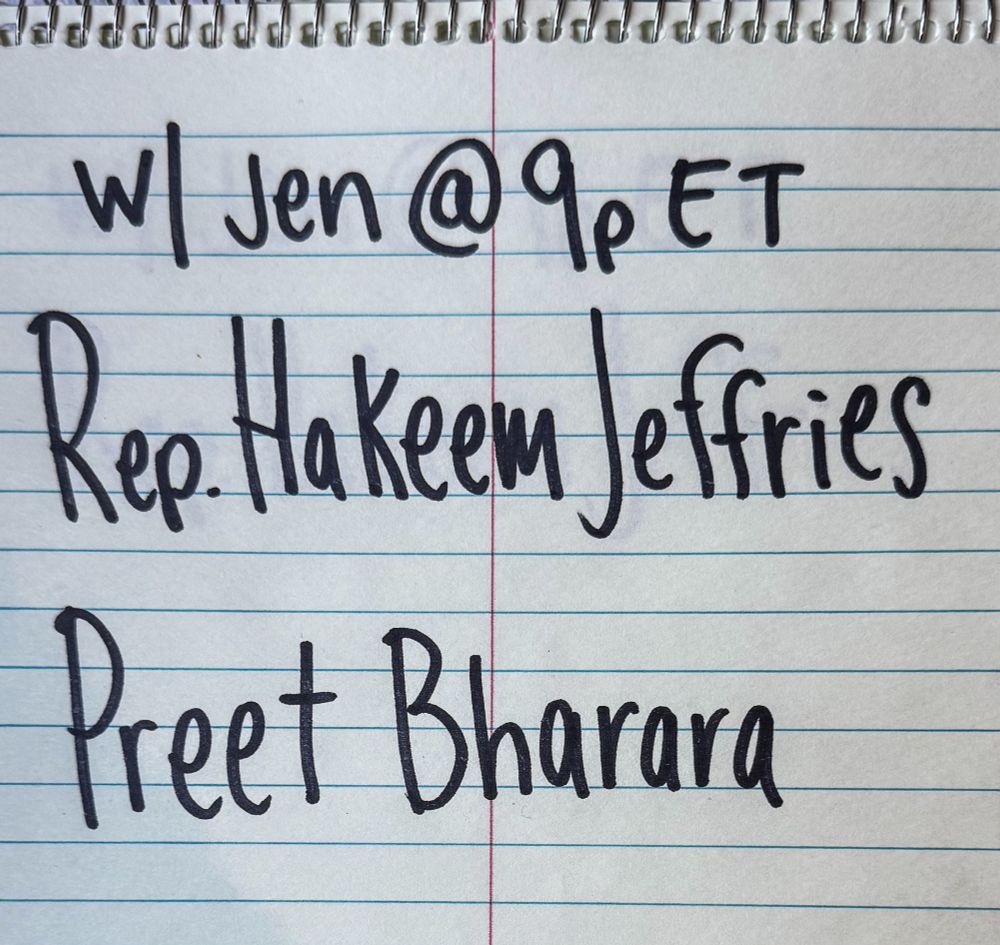 w/ Jen @ 9p ET
Rep. Hakeem Jeffries
Preet Bharara